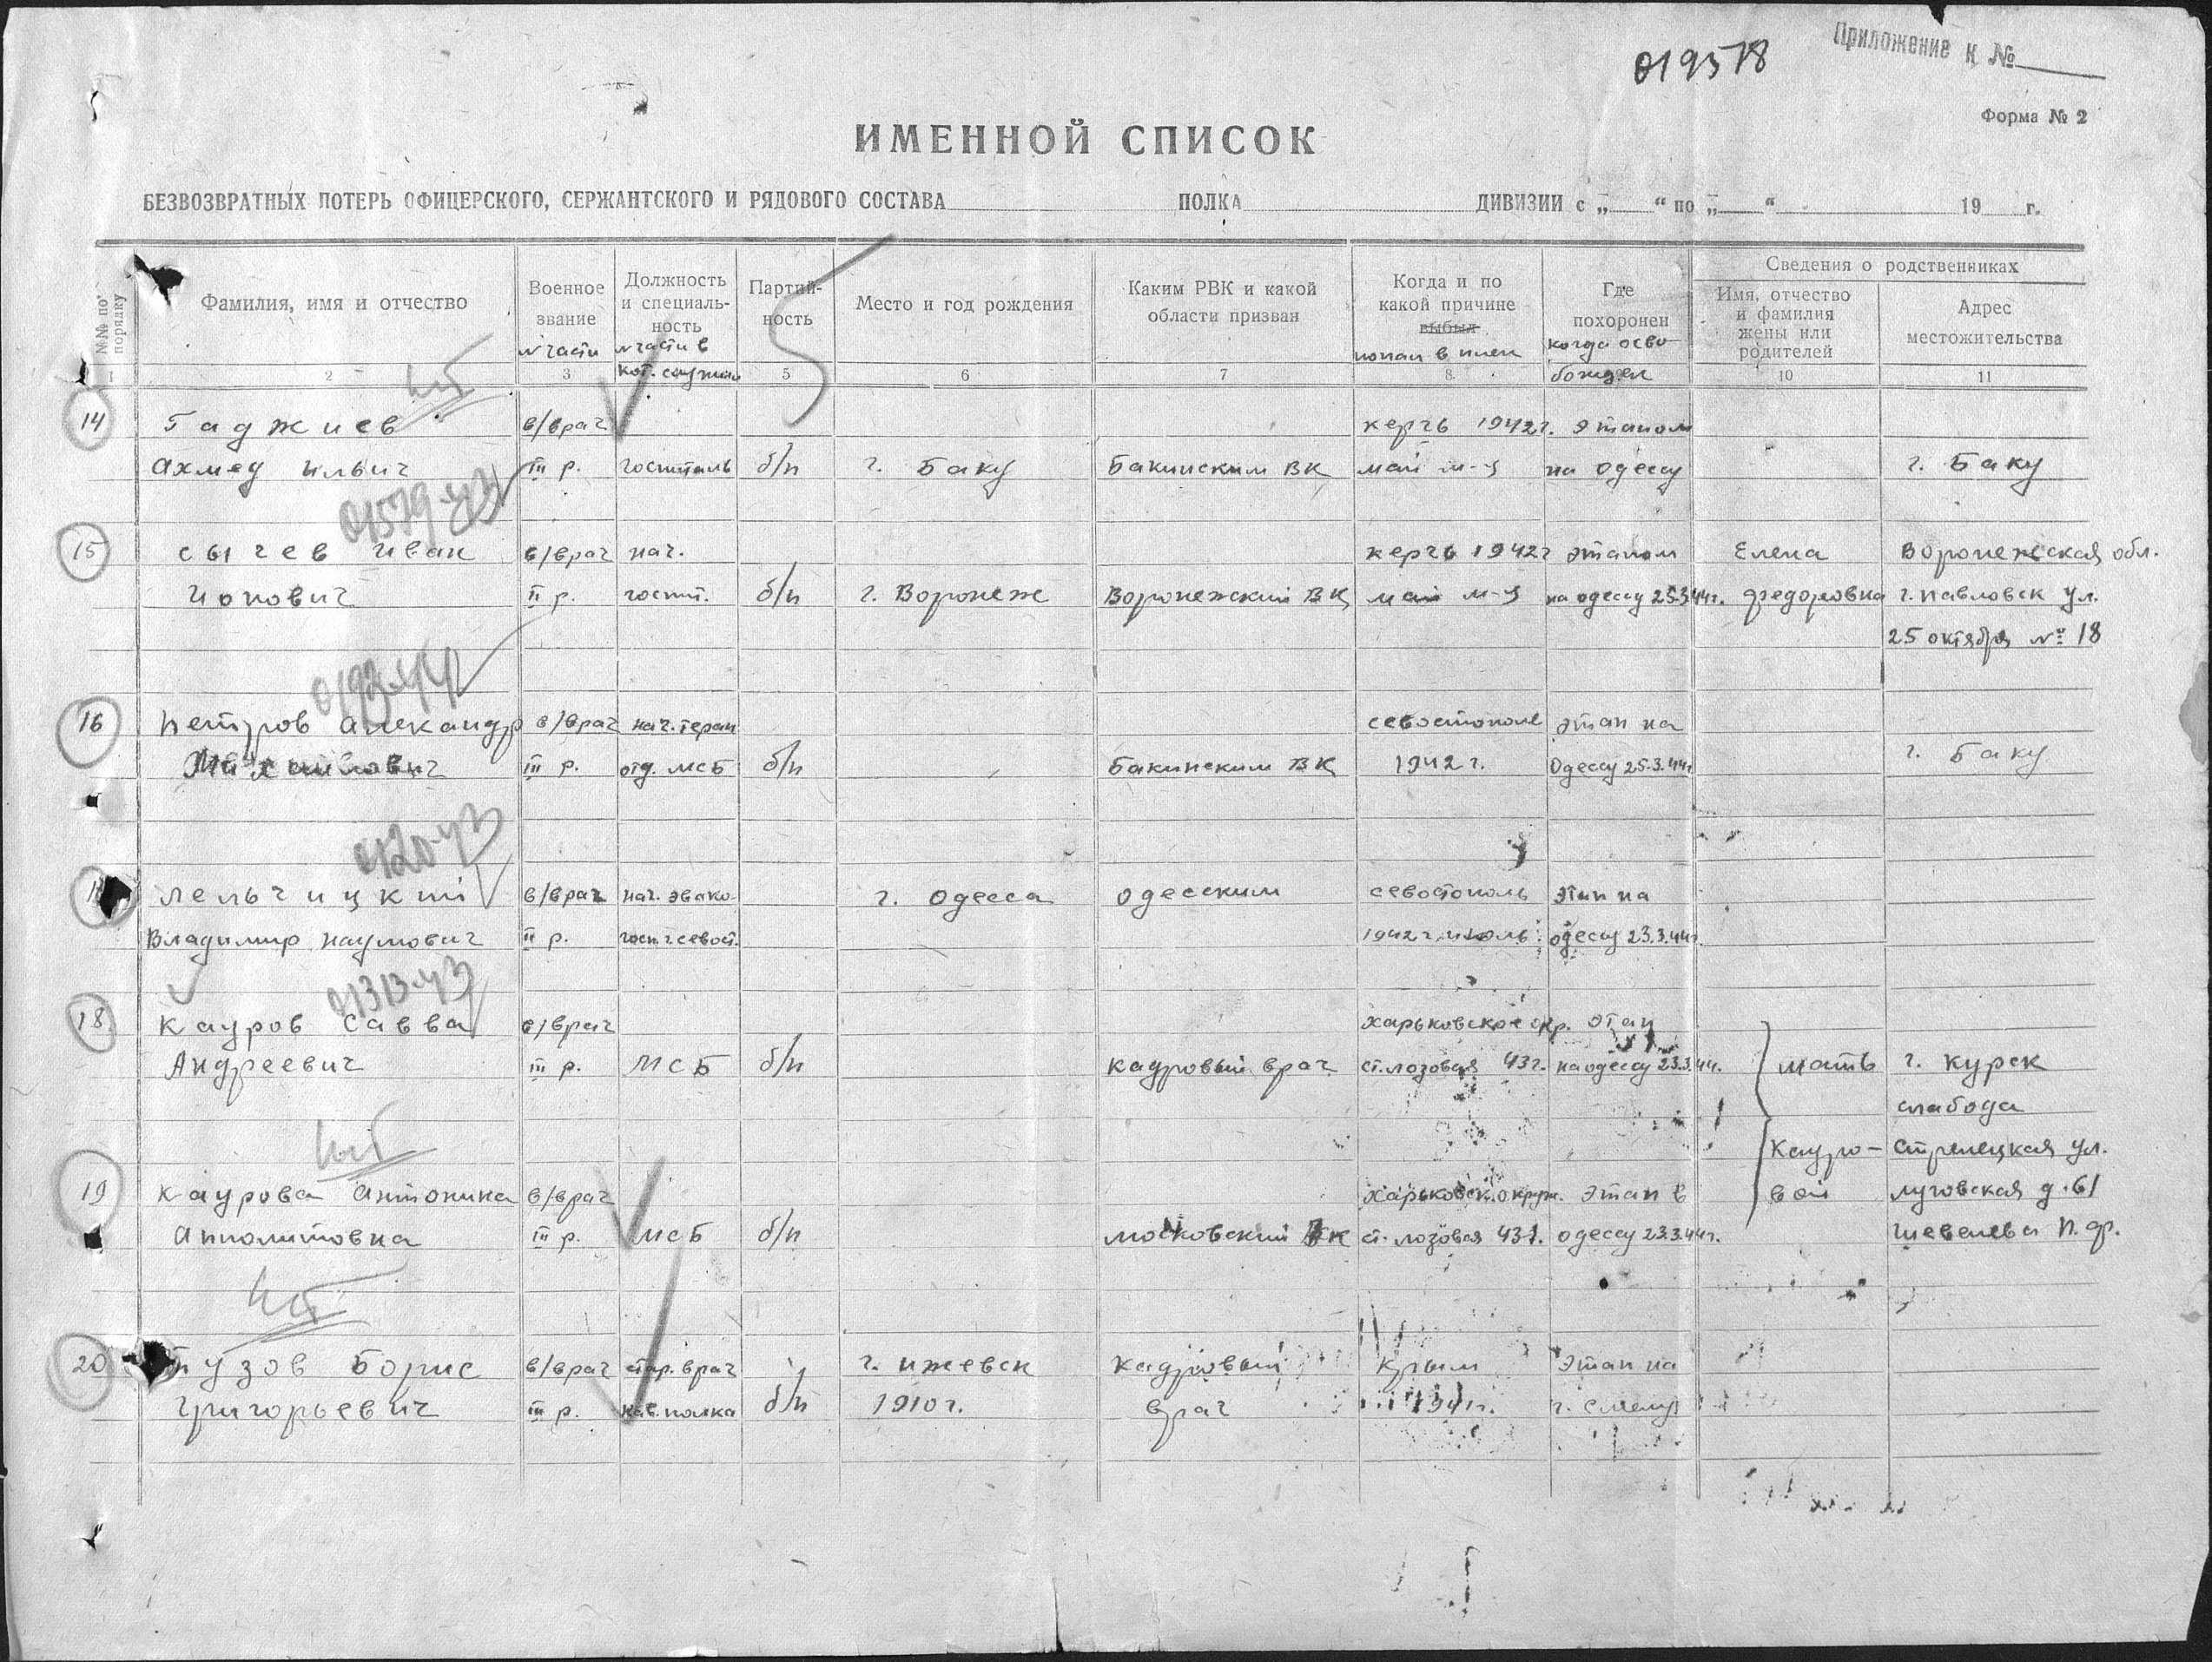 019578
Приложение к №
Форма № 2
ИМЕННОЙ СПИСОК
БЕЗВОЗВРАТНЫХ ПОТЕРЬ ОФИЦЕРСКОГО, СЕРЖАНТСКОГО И РЯДОВОГО СОСТАВА ПОЛКА ДИВИЗИИ с „ “ по „ “ 19 г.
№№ по порядку
Фамилия, имя и отчество
Военное звание
№ части
Должность и специальность
№ части в кот. служил
Партийность
Место и год рождения
Каким РВК и какой области призван
Когда и по какой причине выбыл
попал в плен
Где похоронен
когда освобожден
Сведения о родственниках
Имя, отчество и фамилия жены или родителей
Адрес местожительства
1 2 3 5 6 7 8 10 11
14 Гаджиев в/врач керчь 1942 г. этапом
Ахмед Ильич III р. госпиталь б/п г. Баку Бакинским ВК май м-ц на Одессу г. Баку
01579-43
15 Сычев Иван в/врач нач. керчь 1942 г этапом Елена Воронежская обл.
Ионович II р. госпит. б/п г. Воронеж Воронежский ВК май м-ц на одессу 25.3.44г. Федоровна г. Павловск ул.
25 октября № 18
16 Петров Александр в/врач нач. терап. севостополе этап на
III р. отд. МСБ б/п Бакинским ВК 1942 г. Одессу 25.3.44г г. Баку
0120-43
Лельчицкий в/врач нач. эвако- г. Одесса Одесским севостополь этап на
Владимир Наумович II р. госп. г севост. 1942 г. июль одессу 23.3.44г.
01313-43
18 Кауров Савва в/врач Харьковское окр. этап
Андреевич III р. МСБ б/п кадровый врач ст. лозовая 43 г. на одессу 23.3.44г. мать г. Курск
слабода
Кауро- Стрелецкая ул.
19 Каурова Антонина в/врач Харьковск. окруж. этап в вой луговская д. 61
Апполитовна III р. МСБ б/п московский ВК ст. лозовая 43 г. одессу 23.3.44г. Шевелева П. Ф.
20 Пузов Борис в/врач стар. врач г. Ижевск Кадровый Крым этап на
Григорьевич III р. кав. полка б/п 1910 г. врач 1941 г.